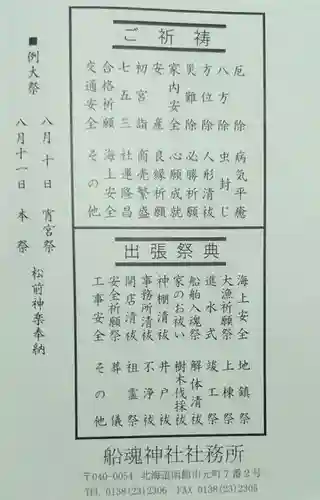 ご祈祷
厄除　病気平癒
八方除　虫封じ
方位除　人形清祓
災難除　必勝祈願
家内安全　心願成就
安産　良縁祈願
初宮詣　商売繁盛
七五三　社運隆昌
合格祈願　海上安全
交通安全　その他
出張祭典
海上安全　地鎮祭
大漁祈願祭　上棟祭
進水式　竣工祭
船舶入魂祭　解体清祓
家のお祓い　樹木伐採祓
神棚清祓　井戸祓
事務所清祓　不浄祓
開店清祓　祖霊祭
安全祈願祭　葬儀
工事安全　その他
■例大祭
八月十日　宵宮祭　松前神楽奉納
八月十一日　本祭
船魂神社社務所
〒040-0054　北海道函館市元町7番2号
TEL 0138(23)2306　FAX 0138(23)2305